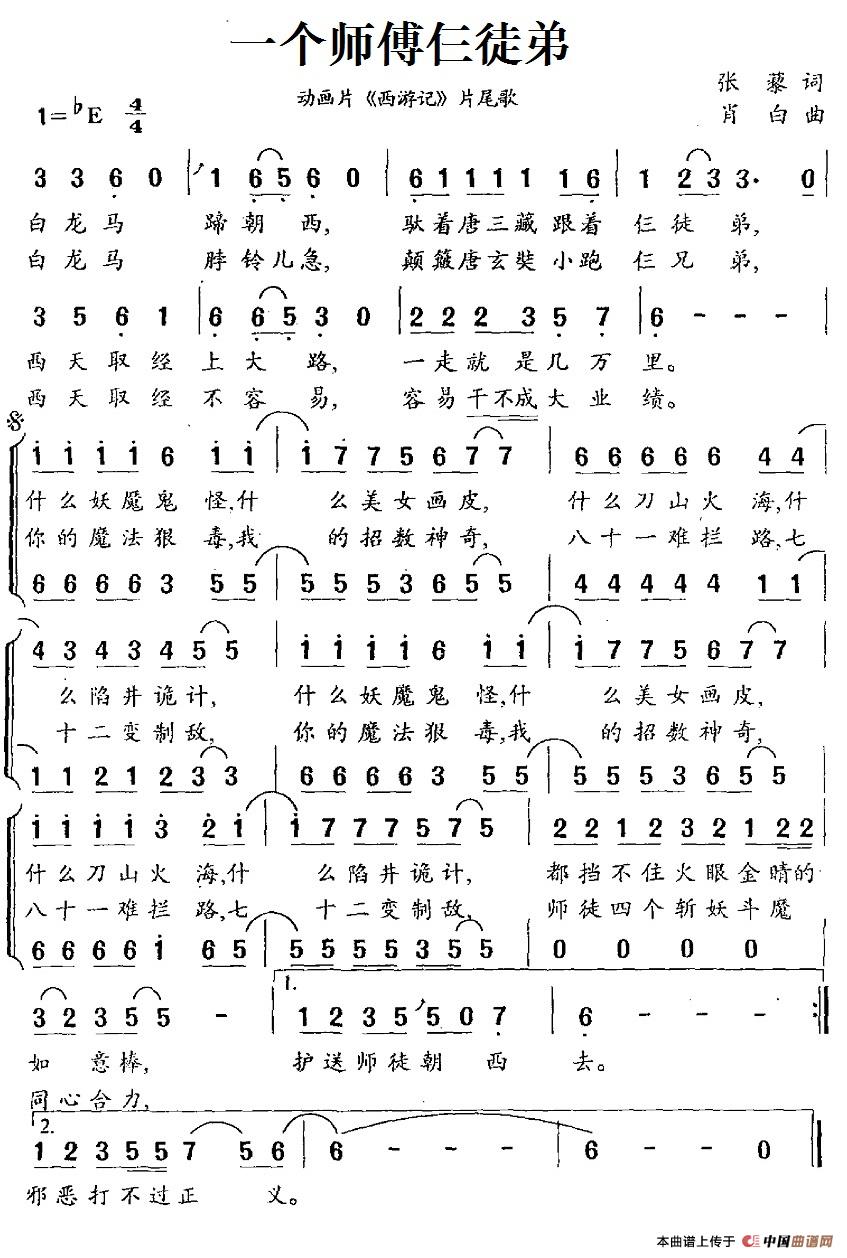 一个师傅仨徒弟
动画片《西游记》片尾歌
张藜词
肖白曲
1=♭E 4/4
3 3 6 0 1 6 5 6 0 6 1 1 1 1 1 6 1 2 3 3 · 0
白龙马 蹄朝西, 驮着唐三藏跟着 仨徒弟,
白龙马 脖铃儿急, 颠簸唐玄奘小跑 仨兄弟,
3 5 6 1 6 6 5 3 0 2 2 2 3 5 7 6 - - -
西天取经上大路, 一走就是几万里。
西天取经不容易, 容易干不成大业绩。
1 1 1 1 6 1 1 1 7 7 5 6 7 7 6 6 6 6 6 4 4
什么妖魔鬼怪,什么美女画皮, 什么刀山火海,什
你的魔法狠毒,我的招数神奇, 八十一难拦路,七
6 6 6 6 3 5 5 5 5 5 3 6 5 5 4 4 4 4 4 1 1
4 3 4 3 4 5 5 1 1 1 1 6 1 1 1 7 7 5 6 7 7
么陷井诡计, 什么妖魔鬼怪,什么美女画皮,
十二变制敌, 你的魔法狠毒,我的招数神奇,
1 1 2 1 2 3 3 6 6 6 6 3 5 5 5 5 5 3 6 5 5
1 1 1 1 3 2 1 1 7 7 7 5 7 5 2 2 1 2 3 2 1 2 2
什么刀山火海,什么陷井诡计, 都挡不住火眼金晴的
八十一难拦路,七十二变制敌, 师徒四个斩妖斗魔
6 6 6 6 1 6 5 5 5 5 5 3 5 5 0 0 0 0
1.
3 2 3 5 5 - 1 2 3 5 5 0 7 6 - - -
如意棒, 护送师徒朝西去。
同心合力,
2.
1 2 3 5 5 7 5 6 6 - - - 6 - - 0
邪恶打不过正义。
本曲谱上传于 中国曲谱网